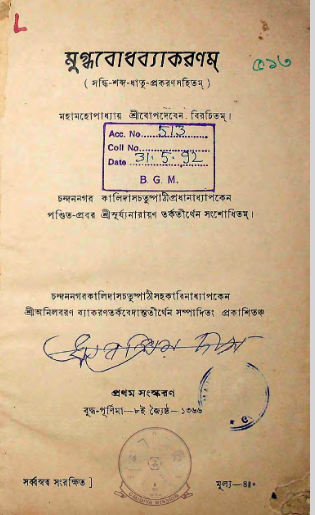 L
৫১৩
মুগ্ধবোধব্যাকরণম্
( সন্ধি-শব্দ-ধাতু-প্রকরণসহিতম্ )
মহামহোপাধ্যায় শ্রীবোপদেবেন বিরচিতম্।
Acc. No. 513
Coll No.
Date 31.5.92
B. G. M.
চন্দননগর কালিদাসচতুষ্পাঠীপ্রধানাধ্যাপকেন
পণ্ডিত-প্রবর শ্রীসূর্য্যনারায়ণ তর্কতীর্থেন সংশোধিতম্।
চন্দননগরকালিদাসচতুষ্পাঠীসহকারিণাধ্যাপকেন
শ্রীঅনিলবরণ ব্যাকরণতর্কবেদান্ততীর্থেন সম্পাদিতং প্রকাশিতঞ্চ
প্রথম সংস্করণ
বুদ্ধ-পূর্ণিমা—৮ই জ্যৈষ্ঠ—১৩৬৬
সর্ব্বস্বত্ব সংরক্ষিত ]
মূল্য—৪॥০